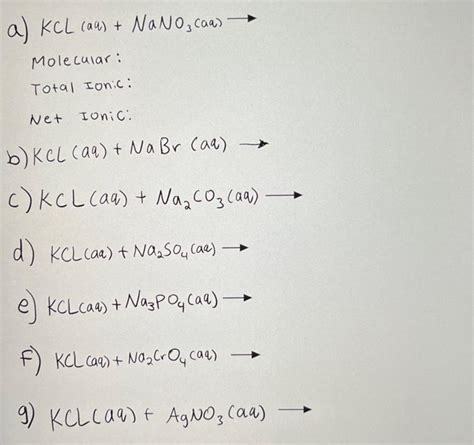 a) KCL (aq) + NaNO₃(aq) →
Molecular:
Total Ionic:
Net Ionic:
b) KCL (aq) + NaBr (aq) →
c) KCL (aq) + Na₂CO₃ (aq) →
d) KCL(aq) + Na₂SO₄ (aq) →
e) KCL(aq) + Na₃PO₄ (aq) →
F) KCL (aq) + Na₂CrO₄ (aq) →
g) KCL (aq) + AgNO₃ (aq) →